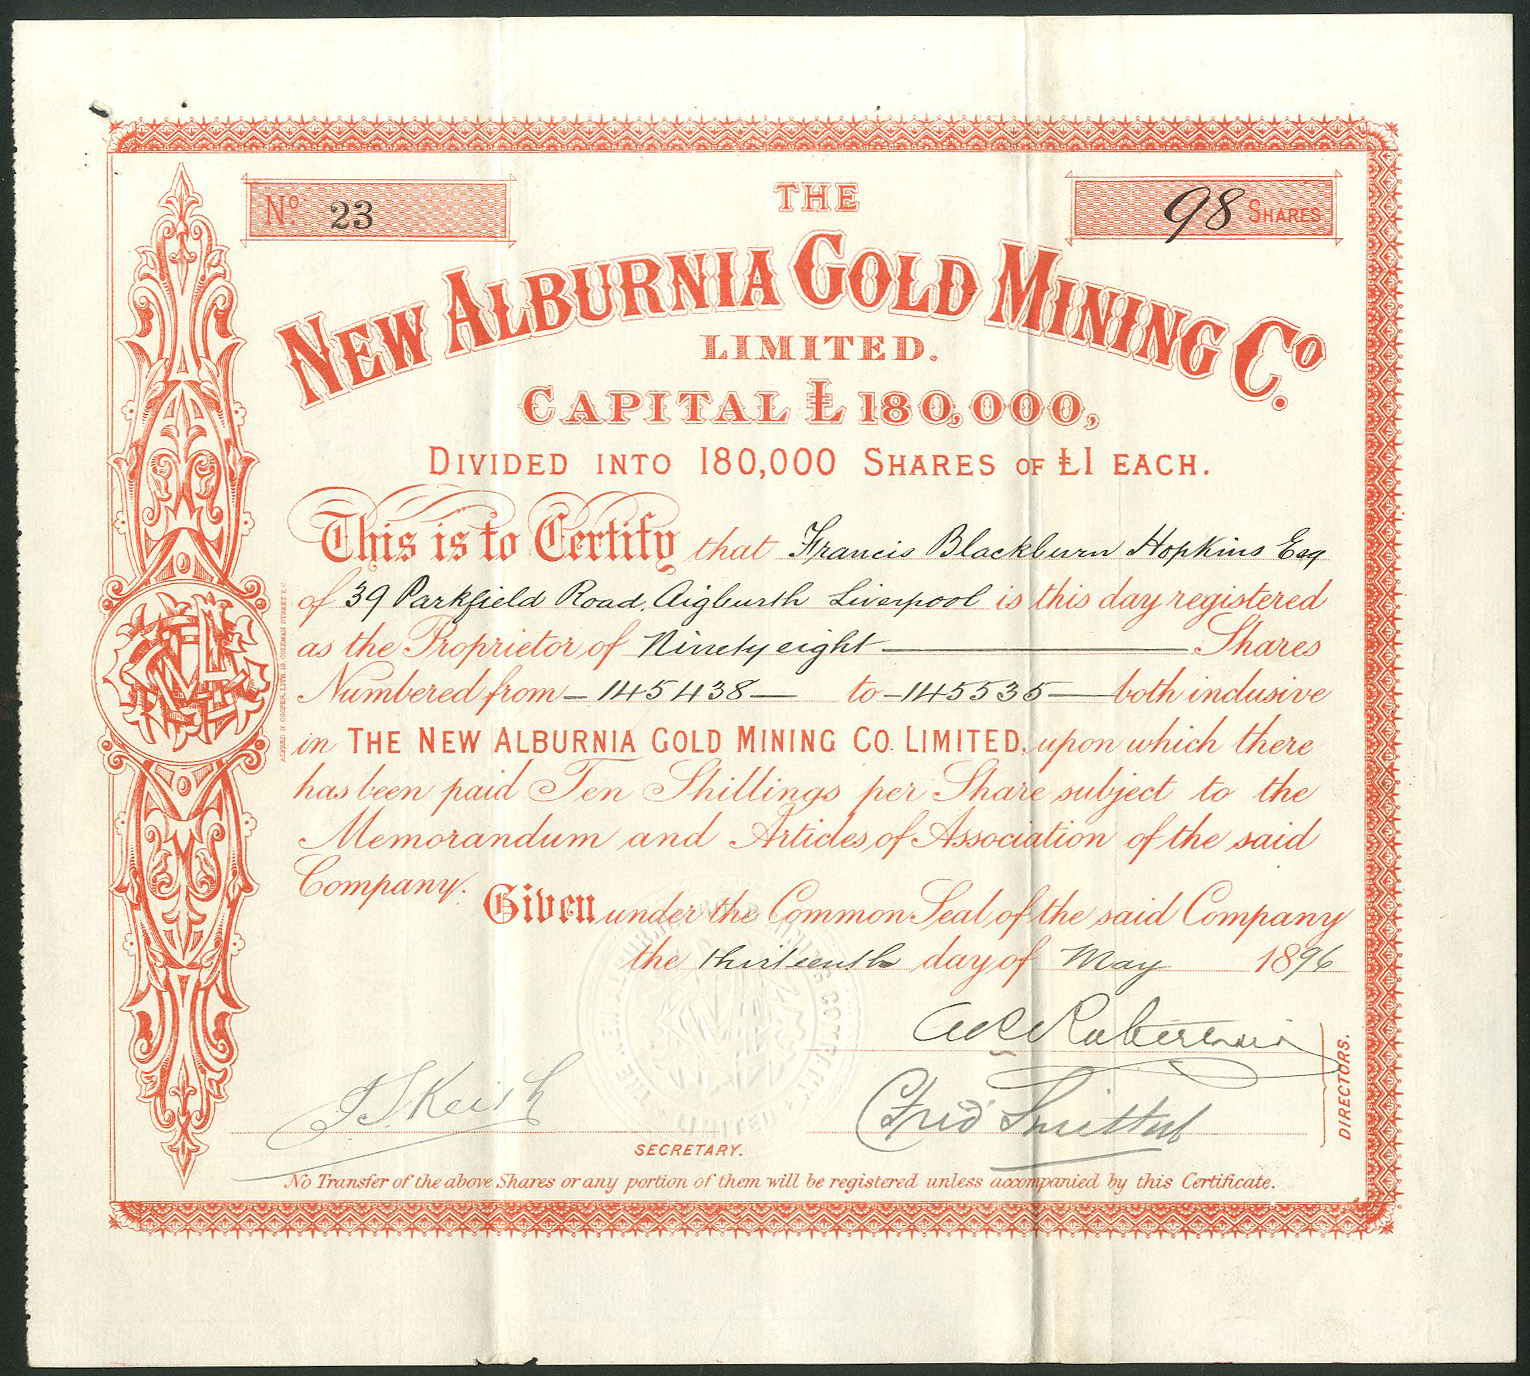 No 23
98 SHARES
THE
NEW ALBURNIA GOLD MINING Co.
LIMITED.
CAPITAL £180,000,
DIVIDED INTO 180,000 SHARES OF £1 EACH.
This is to Certify that Francis Blackburn Hopkins Esq
of 39 Parkfield Road, Aigburth Liverpool is this day registered
as the Proprietor of Ninety eight — Shares
Numbered from — 145438 — to — 145535 — both inclusive
in THE NEW ALBURNIA GOLD MINING CO. LIMITED, upon which there
has been paid Ten Shillings per Share subject to the
Memorandum and Articles of Association of the said
Company.
Given under the Common Seal of the said Company
the thirteenth day of May 1896
DIRECTORS.
SECRETARY.
No Transfer of the above Shares or any portion of them will be registered unless accompanied by this Certificate.